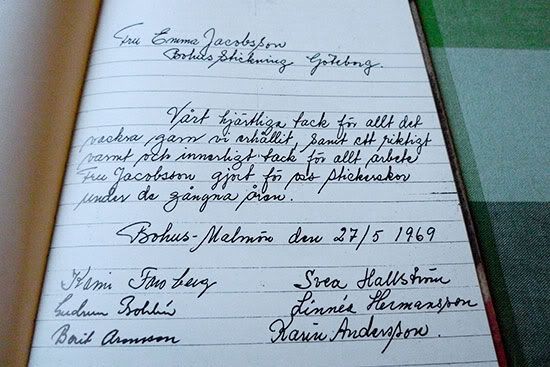 Fru Emma Jacobsson
Bohus Stickning Göteborg.
Vårt hjärtliga tack för allt det
vackra garn vi erhållit, samt ett riktigt
varmt och innerligt tack för allt arbete
Fru Jacobsson gjort för oss stickerskor
under de gångna åren.
Bohus-Malmön den 27/5 1969
Karin Svea Hallström
Gudrun Bohlin Linnéa Hermansson
Berit Aronsson Karin Andersson.